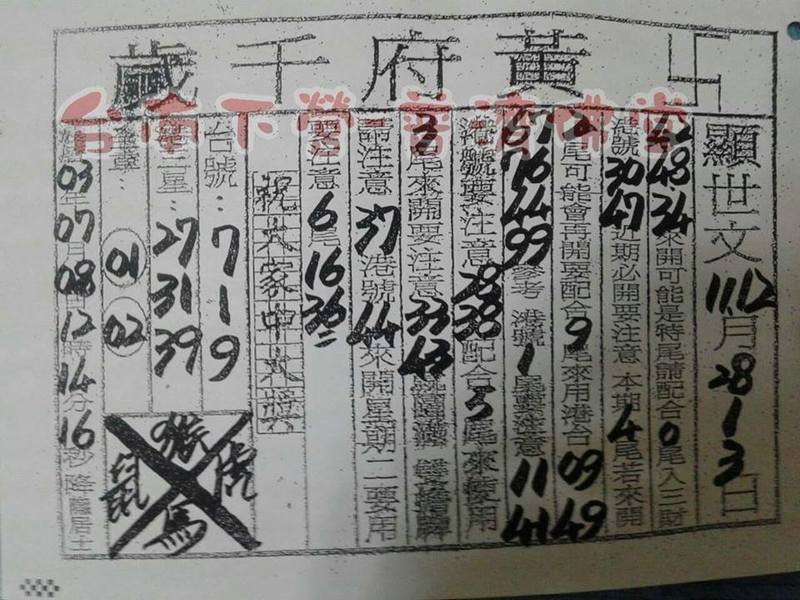 卐 黃府千歲
台南下營 普濟佛堂
顯世文 11 12月 28 1 3日
42 48 34來開可能是特尾請配合0尾入三財
港號30 47近期必開要注意 本期4尾若來開
2尾可能會再開要配合9尾來用港台09 49
67 76 44 99參考 港號1尾要注意11 41
港號要注意28 38配合5尾來使用
3尾來開要注意33 43
請注意37港號44來開星期二要用
要注意6尾16 36=
祝大家中大獎
台號:7 1 9
三星:27 31 39
01 02
03年07月08日12時14分16秒降龍居士
猴 虎 馬 鼠